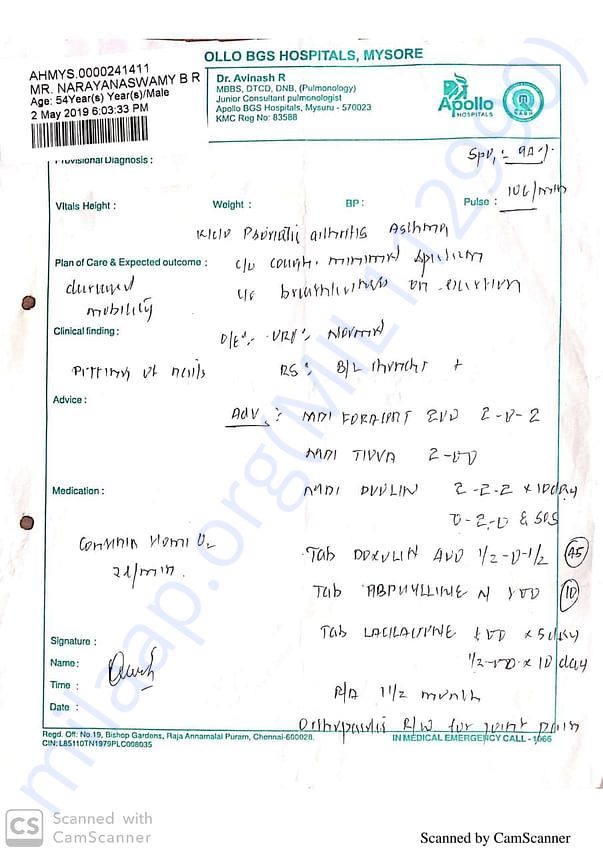 OLLO BGS HOSPITALS, MYSORE
AHMYS.0000241411
MR. NARAYANASWAMY B R
Age: 54Year(s) Year(s)/Male
2 May 2019 6:03:33 PM
Dr. Avinash R
MBBS, DTCD, DNB, (Pulmonology)
Junior Consultant pulmonologist
Apollo BGS Hospitals, Mysuru - 570023
KMC Reg No: 83588
Apollo
HOSPITALS
Provisional Diagnosis :
106/min
Vitals Height :
Weight :
BP :
Pulse :
Psoriatic arthritis Asthma
Plan of Care & Expected outcome :
c/o cough. minimal sputum
c/o breathlessness on exertion
mobility
Clinical finding :
O/E :- URT : Normal
Pitting of nails
RS : B/L rhonchi +
Advice :
Adv : MDI FORACORT 200 2-0-2
MDI TIOVA 2-00
Medication :
MDI DUOLIN 2-2-2 x 10 day
0-2-0 & SOS
2l/min.
Tab DOXOLIN 400 1/2-0-1/2 45
Tab ABPHYLLINE N 10
Tab x 5 day
1/2-00 x 10 day
Signature :
Name :
Time :
R/A 1 1/2 month
Date :
Orthopaedic R/W for joint pain
Regd. Off: No.19, Bishop Gardens, Raja Annamalai Puram, Chennai-600028.
CIN: L85110TN1979PLC008035
IN MEDICAL EMERGENCY CALL - 1066
milaap.org(MIL112990)
CS
Scanned with
CamScanner
Scanned by CamScanner